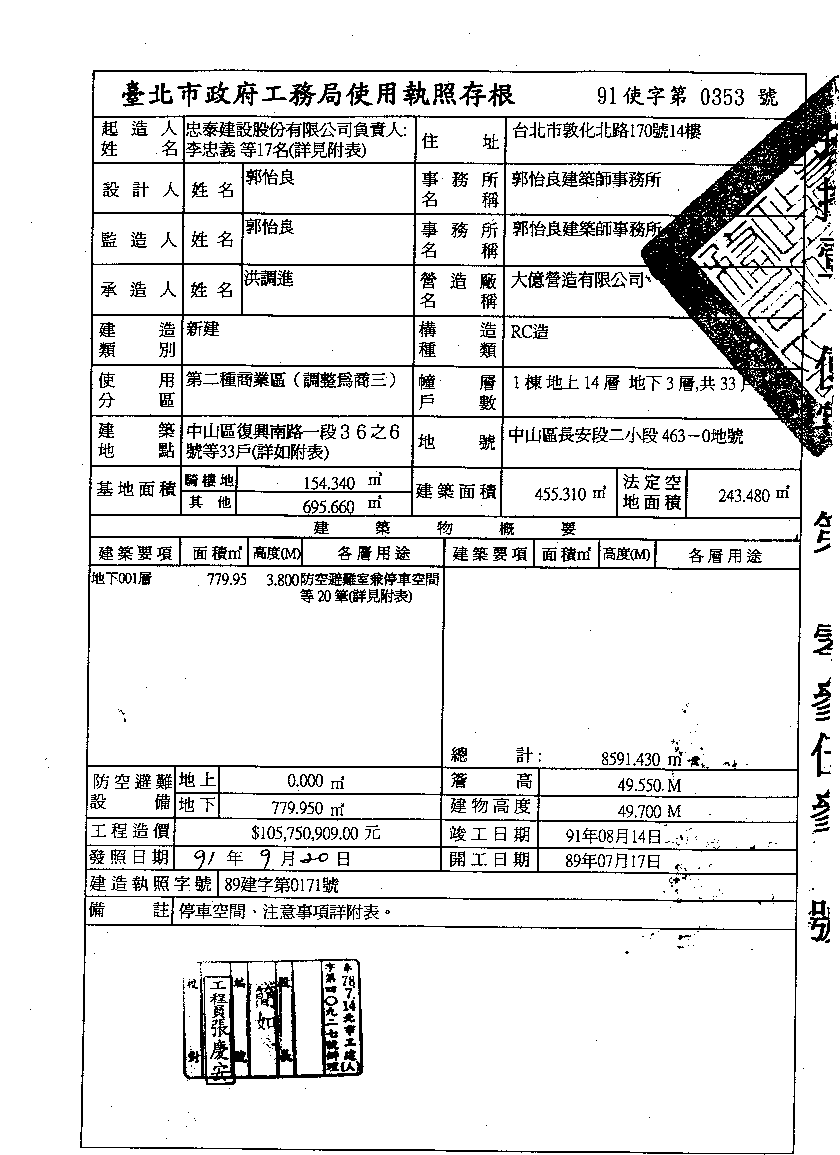 臺北市政府工務局使用執照存根 91使字第 0353 號
起造人姓名 忠泰建設股份有限公司負責人:
李忠義 等17名(詳見附表)
住址 台北市敦化北路170號14樓
設計人 姓名 郭怡良 事務所名稱 郭怡良建築師事務所
監造人 姓名 郭怡良 事務所名稱 郭怡良建築師事務所
承造人 姓名 洪調進 營造廠名稱 大億營造有限公司
建造類別 新建 構造種類 RC造
使用分區 第二種商業區(調整為商三) 幢層戶數 1棟地上14層 地下3層,共33戶
建築地點 中山區復興南路一段36之6
號等33戶(詳如附表)
地號 中山區長安段二小段463-0地號
基地面積 騎樓地 154.340 ㎡
其他 695.660 ㎡
建築面積 455.310 ㎡ 法定空地面積 243.480 ㎡
建築物概要
建築要項 面積㎡ 高度(M) 各層用途 建築要項 面積㎡ 高度(M) 各層用途
地下001層 779.95 3.800 防空避難室兼停車空間
等20筆(詳見附表)
總計: 8591.430 ㎡
防空避難設備 地上 0.000 ㎡ 簷高 49.550 M
地下 779.950 ㎡ 建物高度 49.700 M
工程造價 $105,750,909.00 元 竣工日期 91年08月14日
發照日期 91年9月20日 開工日期 89年07月17日
建造執照字號 89建字第0171號
備註 停車空間、注意事項詳附表。
校對 工程員張慶安
股長
78.7.14北市工建(人)
字第四〇九二七號辦理
號